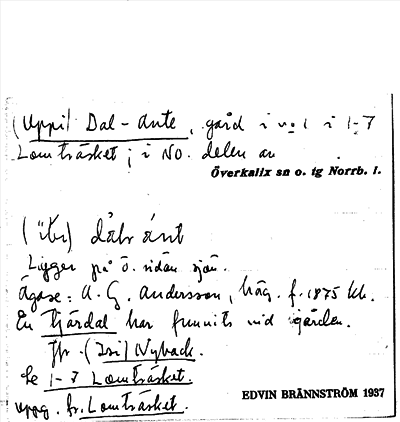 (Uppi) Dal-Ante, gård i no 1 i 1-7
Lomträsket; i NO. delen av
Överkalix sn o. tg Norrb. l.
(üti) dálv ánt
Ligger på ö. sidan sjön.
Ägare: A. G. Andersson, häg. f. 1875 kl.
En tjärdal har funnits vid gården.
Jfr. (Isi) Nyback.
Se 1-7 Lomträsket.
uppg. fr. Lomträsket.
EDVIN BRÄNNSTRÖM 1937